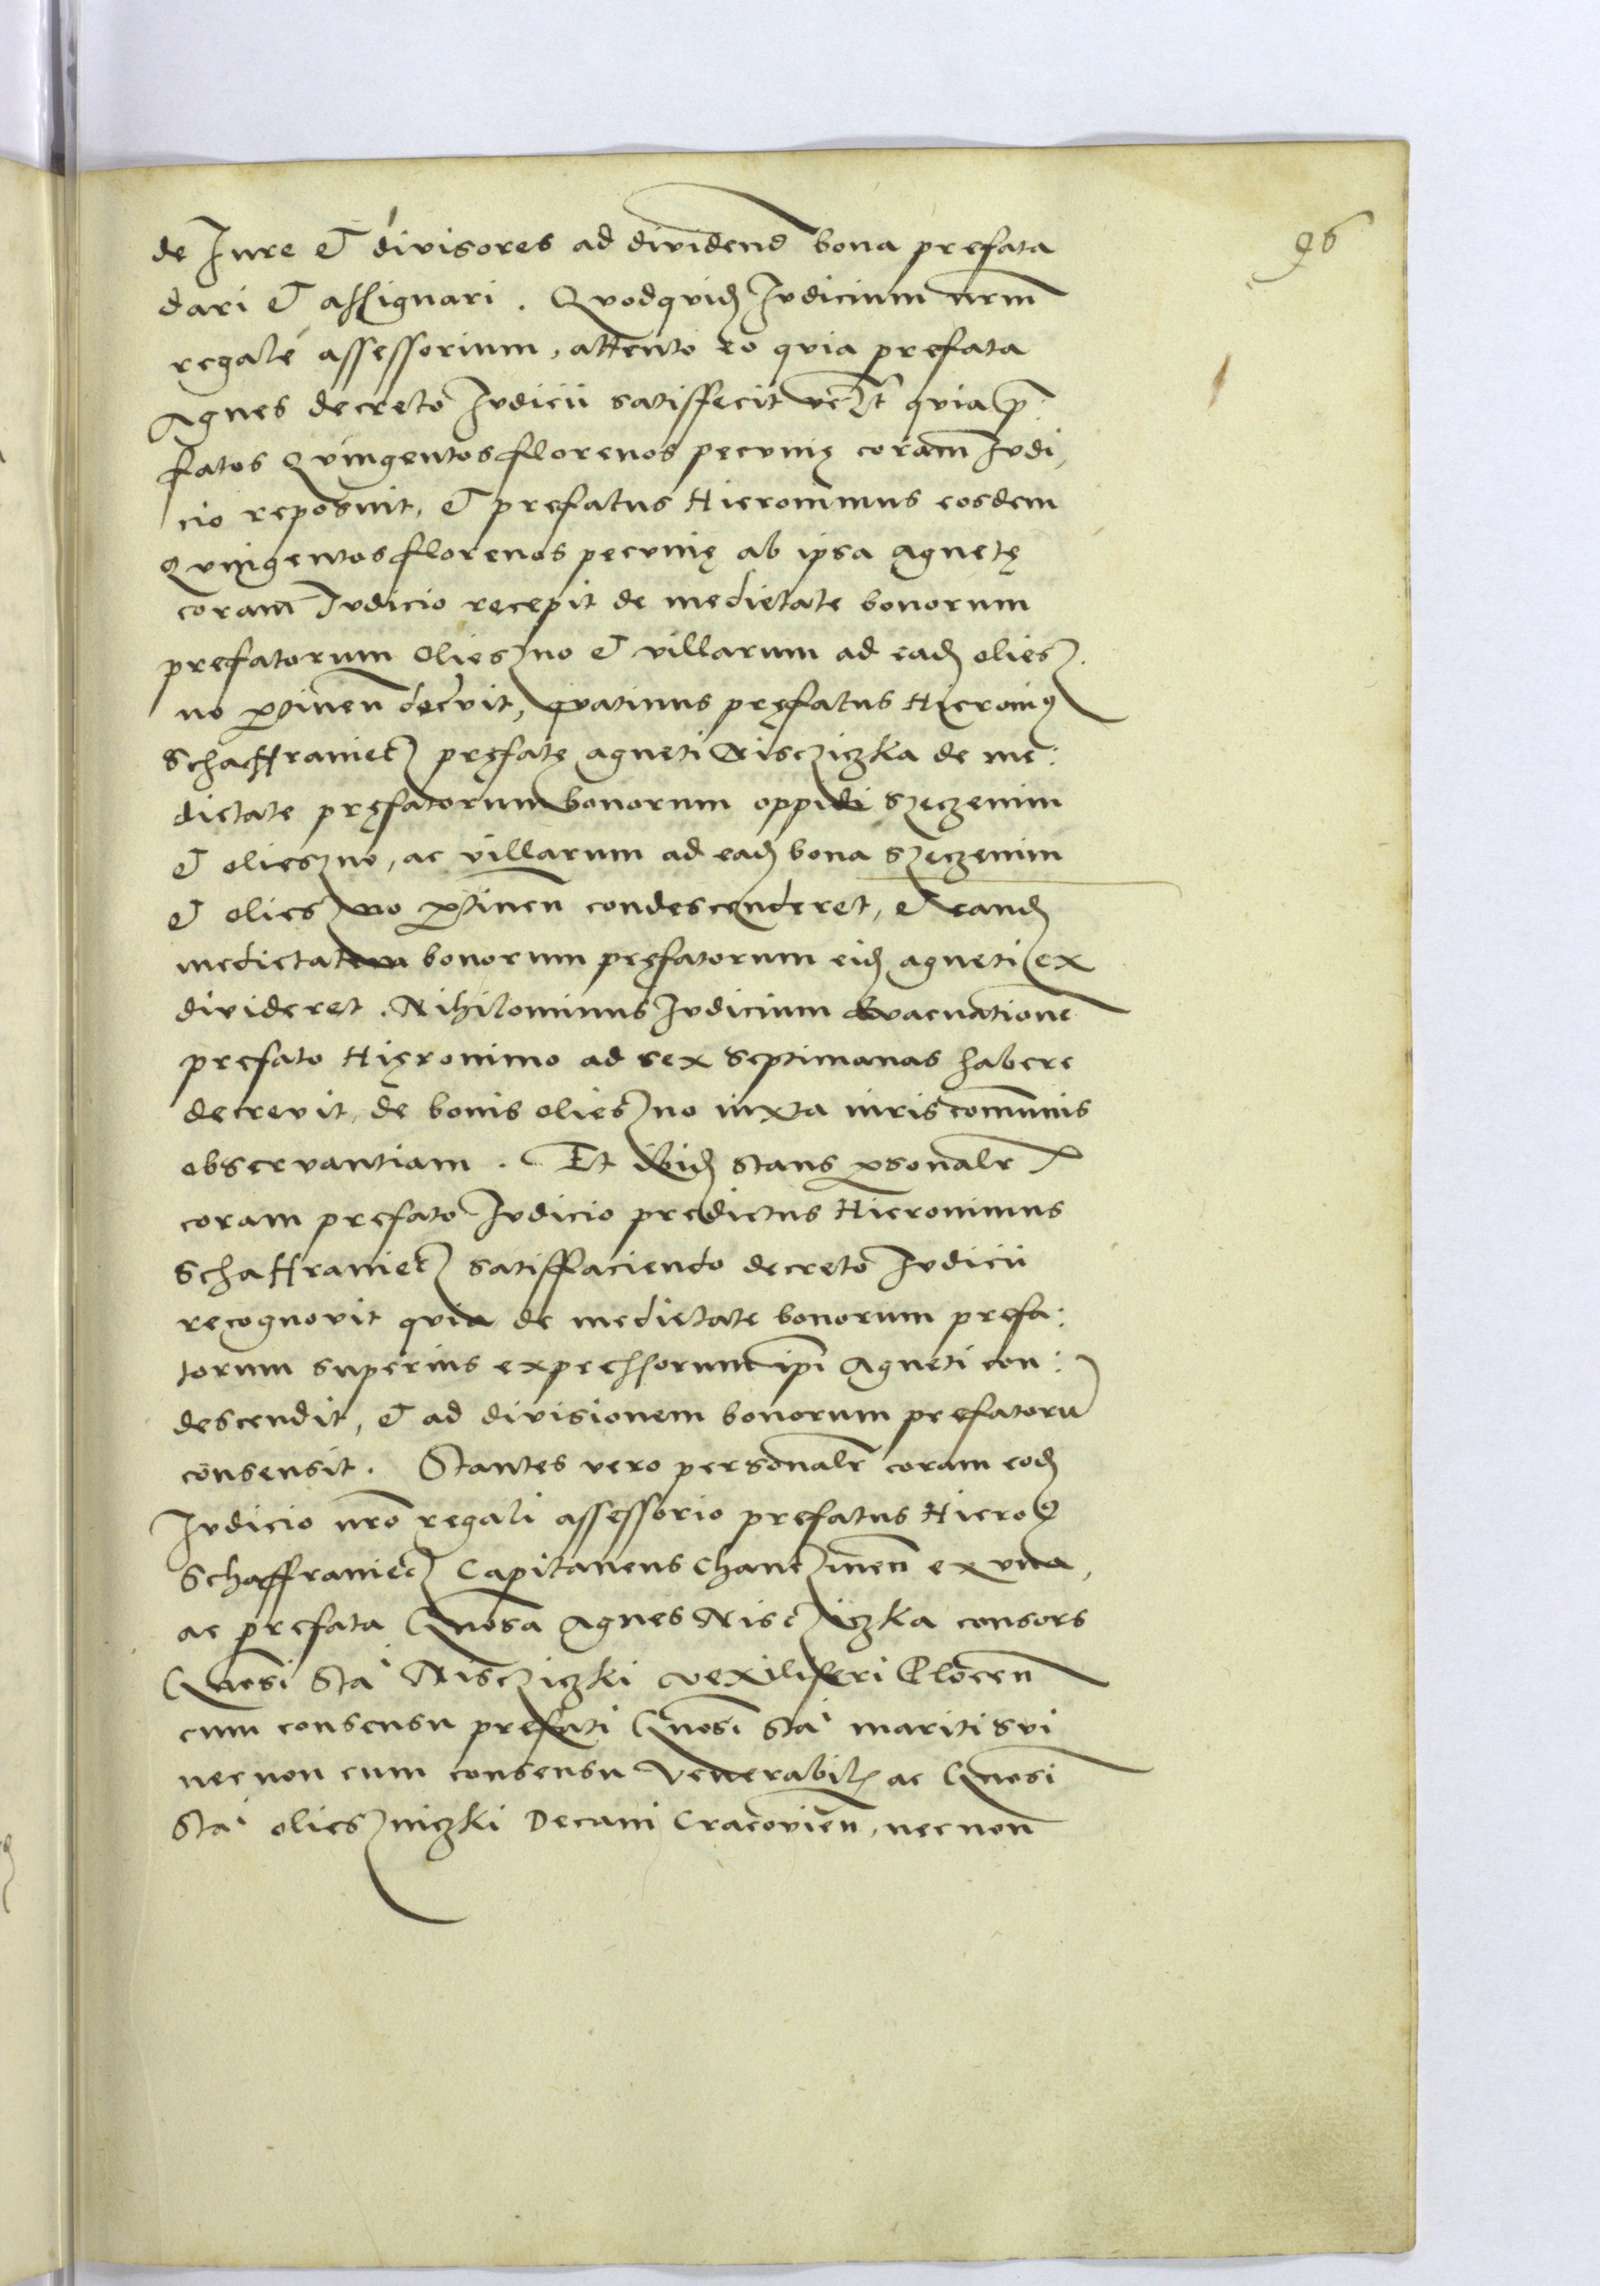 96
de Iure et divisores ad dividend bona prefata
dari et assignari. Quodquid Iudicium nrm
regale assessorium, attento eo quia prefata
Agnes decreto Iudicii satisfecit quia p
fatos Quingentos florenos pecunię coram Iudi,
cio reposuit, et prefatus Hieronimus eosdem
Quingentos florenos pecunię ab ipsa Agnetę
coram Iudicio recepit de medietate bonorum
prefatorum Olieszno et villarum ad ead Oliesz.
no ptinen decrevit, quatinus pręfatus Hieronig
Schaffraniecz pręfatę Agneti Niscziczka de me:
dietate pręfatorum bonorum oppidi Szęczemin
et Olieszno, ac villarum ad ead bona Szęczemin
et Olieszno ptinen condescenderet, et eand
medietatem bonorum pręfatorum eid Agneti ex
divideret. Nihilominus Iudicium Evacuatione
prefato Hięronimo ad sex septimanas habere
decrevit, de bonis Olieszno iuxta iuris communis
observantiam. Et ibid stans psonalr
coram prefato Iudicio predictus Hieronimus
Schaffraniecz satisfaciendo decreto Iudicii
recognovit quia de medietate bonorum prefa:
torum superius expressorum ipi Agneti con:
descendit, et ad divisionem bonorum prefatorū
consensit. Stantes vero personalr coram eod
Iudicio nro regali assessorio prefatus Hiero
Schaffraniecz Capitaneus Chanczinen ex una,
ac prefata Gnosa Agnes Niscziczka consors
Gnosi Sta Niscziczki vexiliferi Plocen
cum consensu prefati Gnosi Sta mariti sui
nec non cum consensu Venerabil ac Gnosi
Sta Olieszniczki Decani Cracovien, nec non